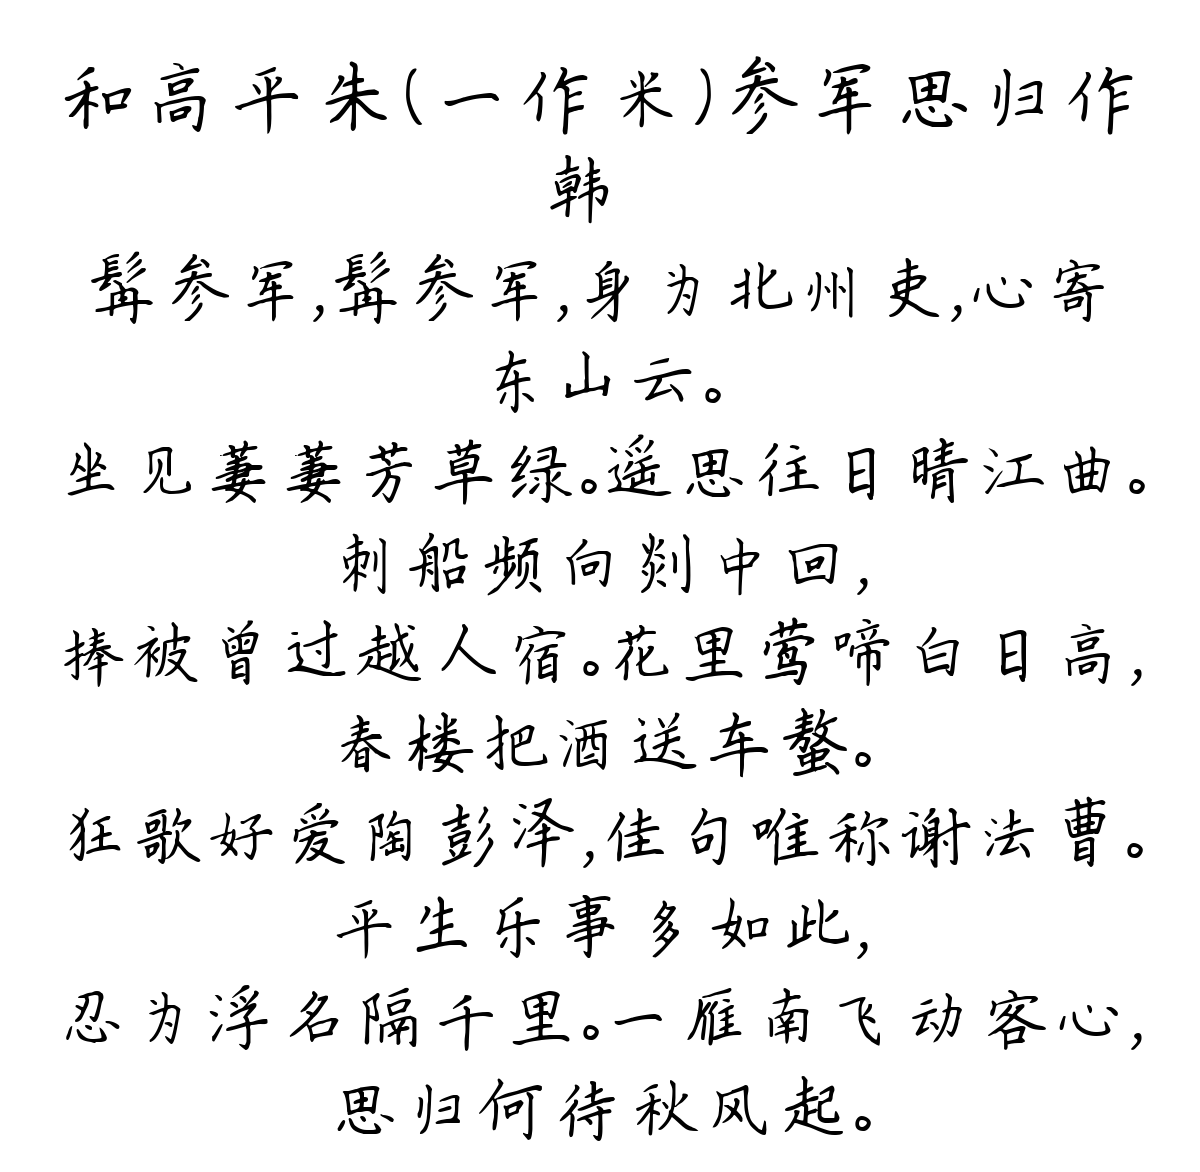 和高平朱(一作米)参军思归作
韩
髯参军,髯参军,身为北州吏,心寄
东山云。
坐见萋萋芳草绿。遥思往日晴江曲。
刺船频向剡中回,
捧被曾过越人宿。花里莺啼白日高,
春楼把酒送车螯。
狂歌好爱陶彭泽,佳句唯称谢法曹。
平生乐事多如此,
忍为浮名隔千里。一雁南飞动客心,
思归何待秋风起。